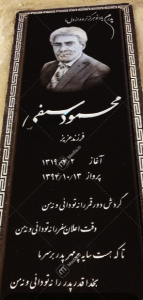 محمود سیفی
فرزند عزیز
آغاز ۱۳۱۹/ /۲
پرواز ۱۳۹۲/۱۰/۱۳
گردش دور قمر را نه تو دانی و نه من
وقت اعلان سفر را نه تو دانی و نه من
تا که هست سایه پر مهر پدر بر سر ما
بخدا قدر پدر را نه تو دانی و نه من